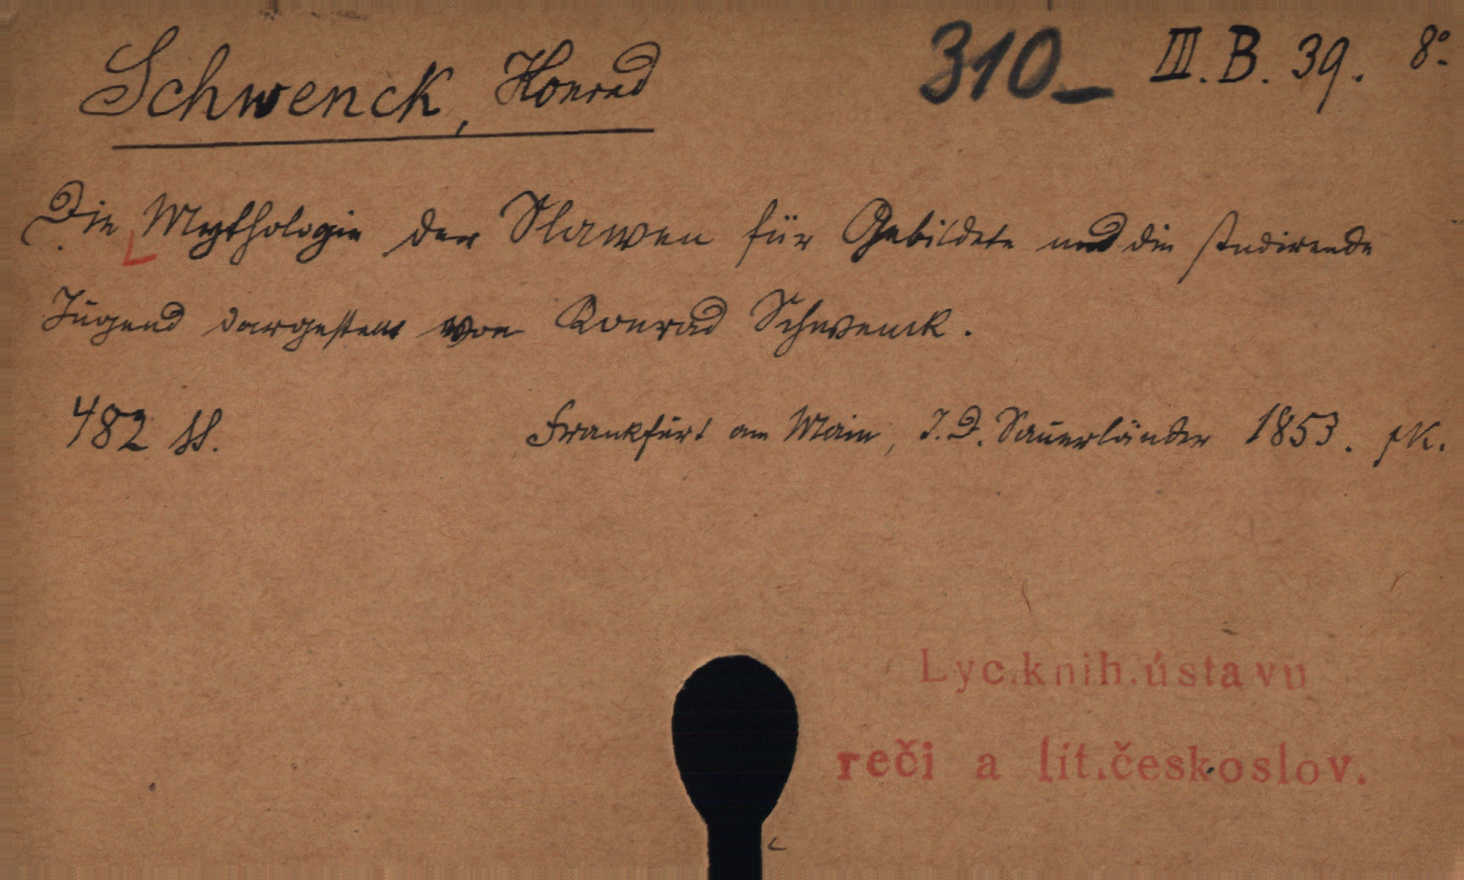 Schwenck, Konrad 310_ III. B. 39. 8°
Die Mythologie der Slawen für Gebildete und die studirende
Jugend dargestellt von Konrad Schwenck.
482 SS. Frankfurt am Main, J. D. Sauerländer 1853.
Lyc.knih.ústavu
reči a lit.českoslov.